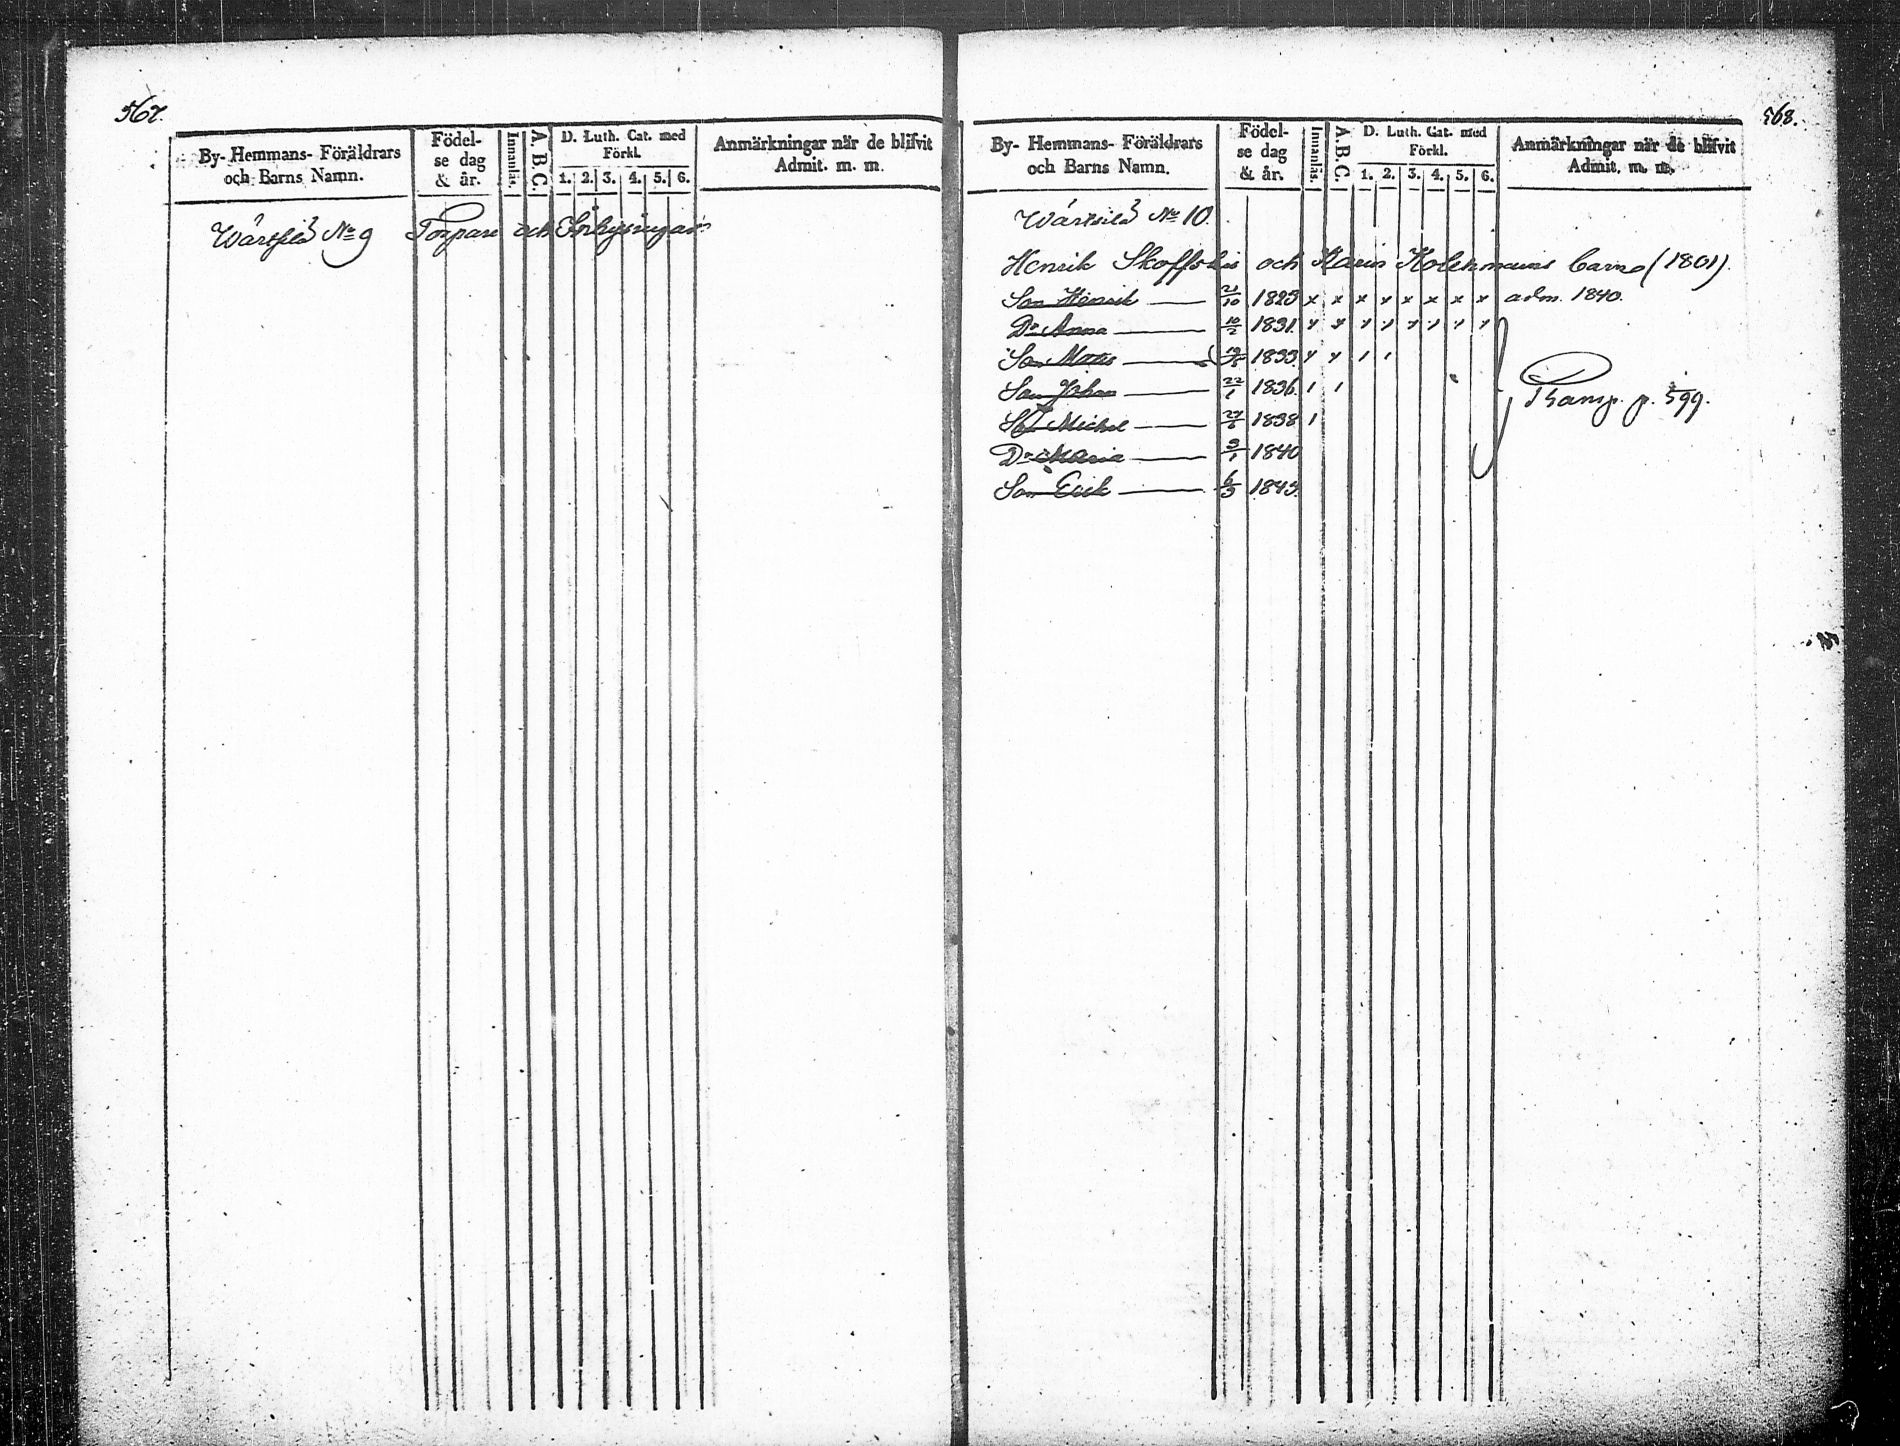 567.
By- Hemmans- Föräldrars och Barns Namn.
Födelse dag & år.
Innanläs.
A. B. C.
D. Luth. Cat. med Förkl.
1. 2. 3. 4. 5. 6.
Anmärkningar när de blifvit Admit. m. m.
Wärtsilä No 9 Torpare och Inhysingar
568.
By- Hemmans- Föräldrars och Barns Namn.
Födelse dag & år.
Innanläs.
A. B. C.
D. Luth. Cat. med Förkl.
1. 2. 3. 4. 5. 6.
Anmärkningar när de blifvit Admit. m. m.
Wärtsilä No 10.
Henrik och Karin Kolehmains barn (1801).
Son Henrik 21/10 1825 x x x x x x x x adm. 1840.
Dr Anna 10/2 1831
Son Mats 1833
Son Johan 22/1 1836
Son Michel 1838
Dr Maria 3/1 1840
Son Erik 1843
p. 599.